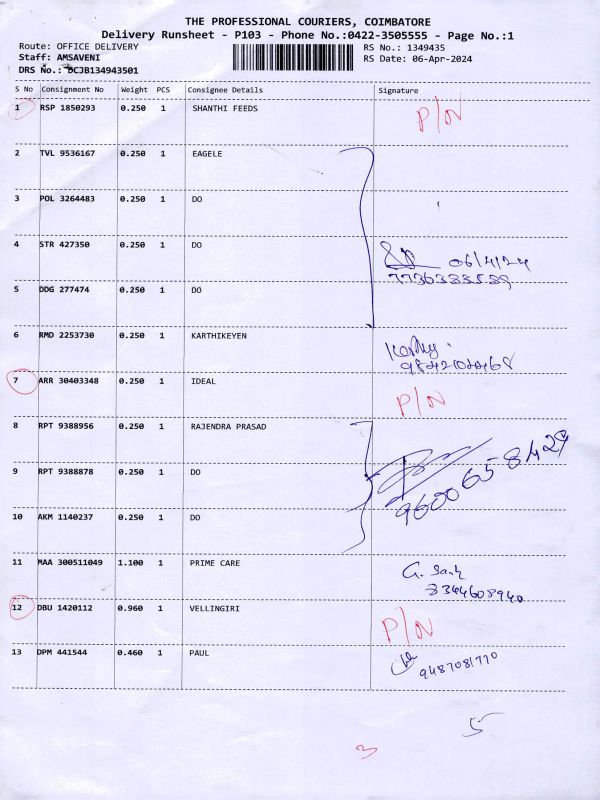 THE PROFESSIONAL COURIERS, COIMBATORE
Delivery Runsheet - P103 - Phone No.:0422-3505555 - Page No.:1
Route: OFFICE DELIVERY RS No.: 1349435
Staff: AMSAVENI RS Date: 06-Apr-2024
DRS No.: DCJB134943501
S No Consignment No Weight PCS Consignee Details Signature
1 RSP 1850293 0.250 1 SHANTHI FEEDS P/N
2 TVL 9536167 0.250 1 EAGELE
3 POL 3264483 0.250 1 DO
4 STR 427350 0.250 1 DO 06/4/24
5 DDG 277474 0.250 1 DO
6 RMD 2253730 0.250 1 KARTHIKEYEN
7 ARR 30403348 0.250 1 IDEAL P/N
8 RPT 9388956 0.250 1 RAJENDRA PRASAD
9 RPT 9388878 0.250 1 DO 9600658429
10 AKM 1140237 0.250 1 DO
11 MAA 300511049 1.100 1 PRIME CARE
12 DBU 1420112 0.960 1 VELLINGIRI P/N
13 DPM 441544 0.460 1 PAUL 9487081770
5
3